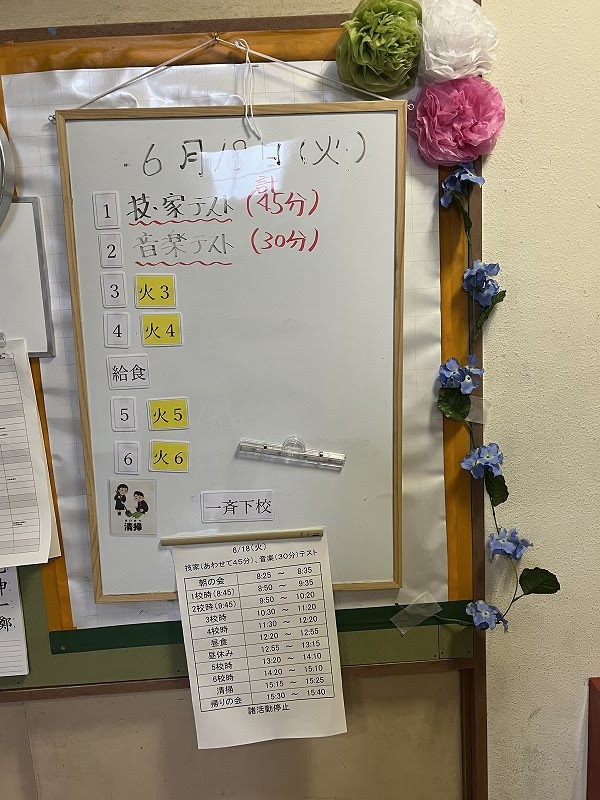 6月18日(火)
計
1 技・家テスト (45分)
2 音楽テスト (30分)
3 火3
4 火4
給食
5 火5
6 火6
清掃
一斉下校
6/18(火)
技家(あわせて45分)、音楽(30分)テスト
朝の会 8:25 ～ 8:35
1校時(8:45) 8:50 ～ 9:35
2校時(9:45) 9:50 ～ 10:20
3校時 10:30 ～ 11:20
4校時 11:30 ～ 12:20
昼食 12:20 ～ 12:55
昼休み 12:55 ～ 13:15
5校時 13:20 ～ 14:10
6校時 14:20 ～ 15:10
清掃 15:15 ～ 15:25
帰りの会 15:30 ～ 15:40
諸活動停止